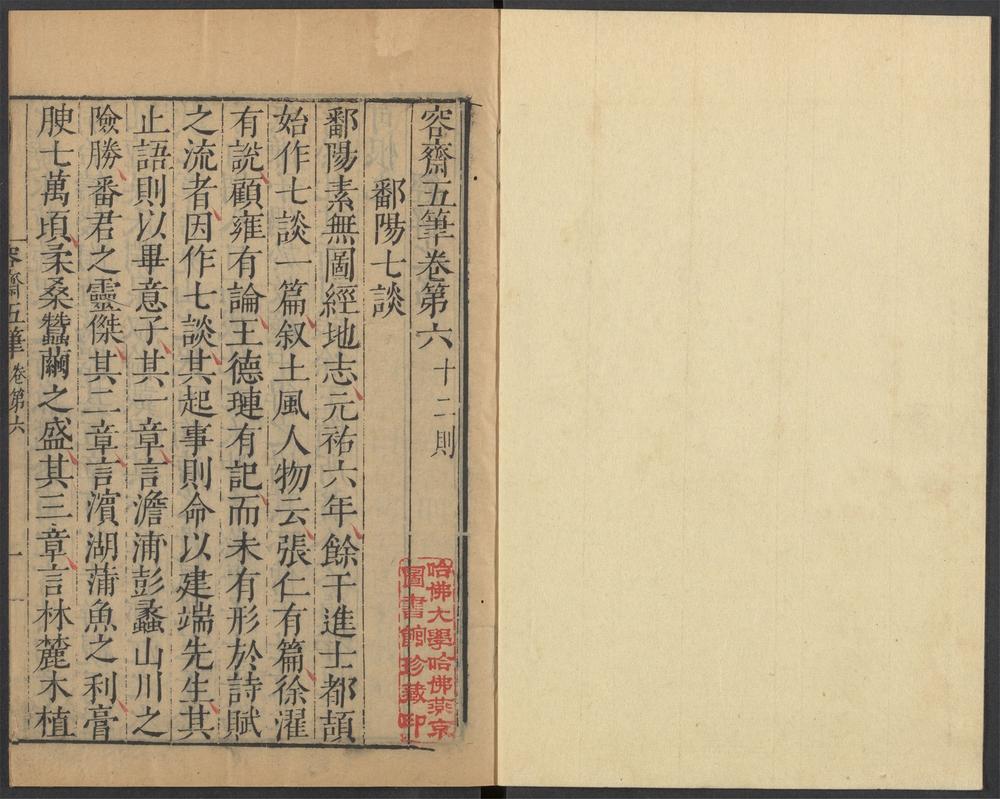 容齋五筆卷第六 十二則
鄱陽七談
鄱陽素無圖經地志元祐六年餘干進士都頡
始作七談一篇叙土風人物云張仁有篇徐濯
有説顧雍有論王德璉有記而未有形於詩賦
之流者因作七談其起事則命以建端先生其
止語則以畢意子其一章言澹浦彭蠡山川之
險勝番君之靈傑其二章言濵湖蒲魚之利膏
腴七萬頃柔桑蠶繭之盛其三章言林麓木植
容齋五筆 卷第六 一
哈佛大學哈佛燕京
圖書館珍藏印